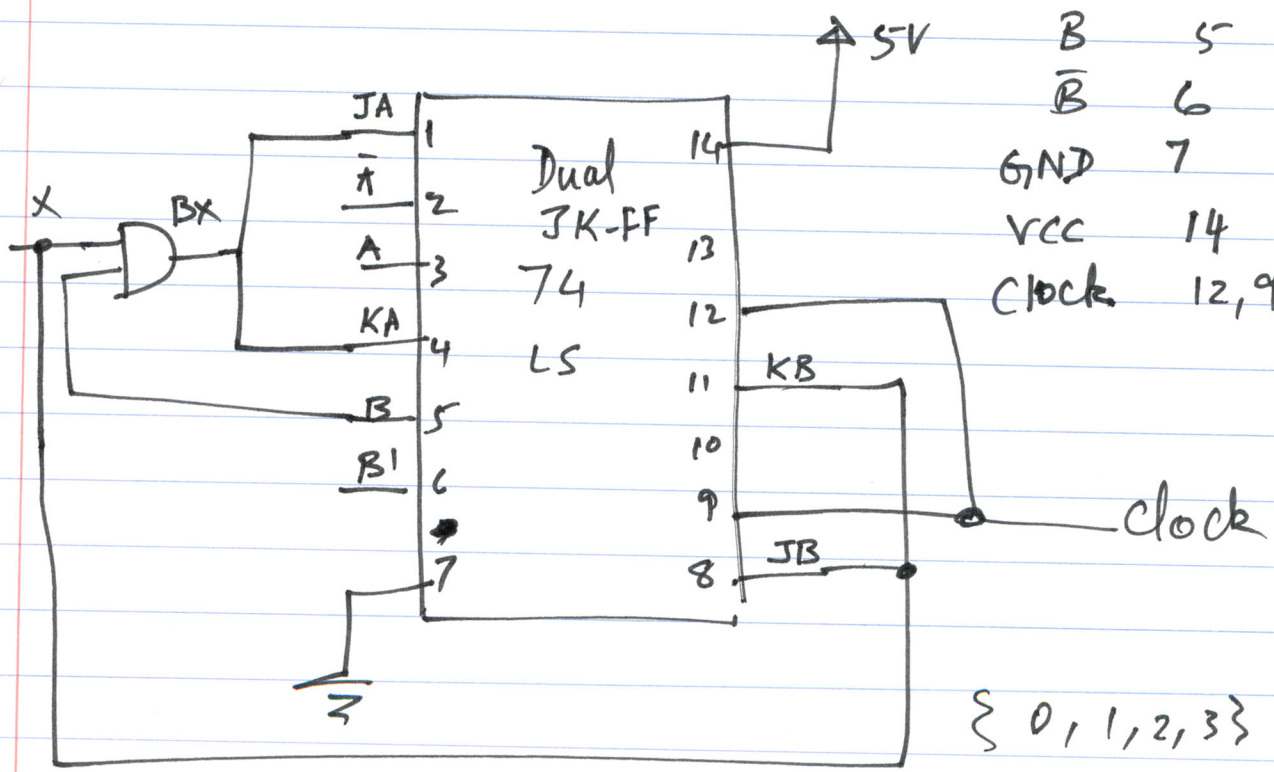 5V
B 5
B̅ 6
GND 7
VCC 14
Clock 12, 9
X
BX
JA 1
A̅ 2
A 3
KA 4
B 5
B' 6
7
Dual
JK-FF
74
LS
14
13
12
11 KB
10
9
Clock
8 JB
{ 0, 1, 2, 3 }